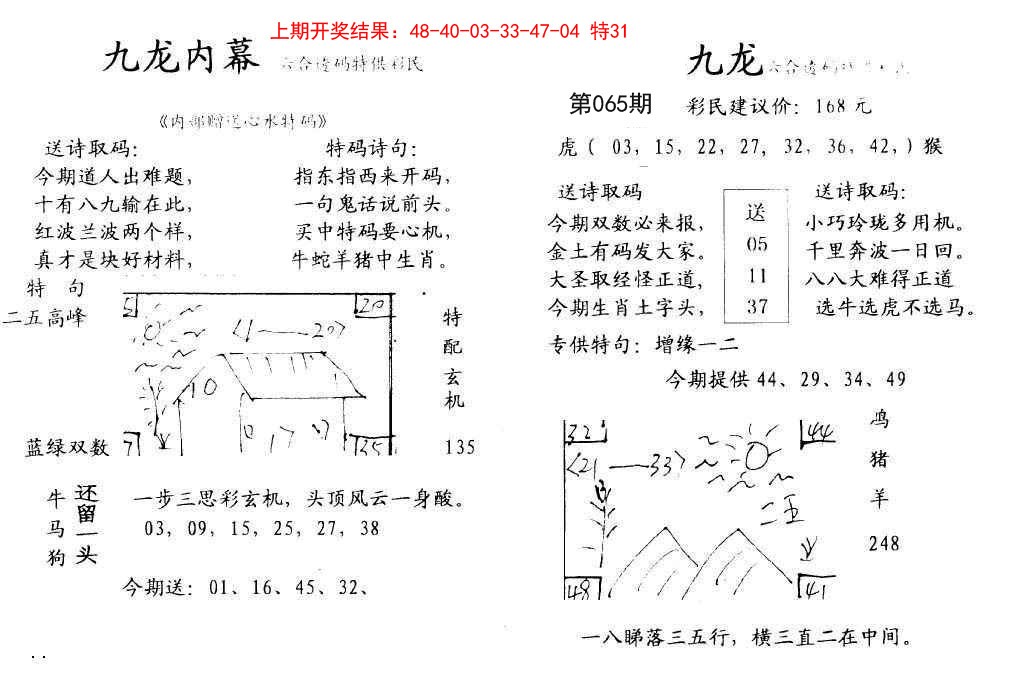 上期开奖结果：48-40-03-33-47-04 特31
九龙内幕 六合透码特供彩民
《内部赠送心水特码》
送诗取码：
今期道人出难题，
十有八九输在此，
红波兰波两个样，
真才是块好材料，
特码诗句：
指东指西来开码，
一句鬼话说前头。
买中特码要心机，
牛蛇羊猪中生肖。
特 句
二五高峰
蓝绿双数
5
20
<1——20>
10
0 17
7
35
特
配
玄
机
135
牛
马
狗
还
留
一
头
一步三思彩玄机，头顶风云一身酸。
03, 09, 15, 25, 27, 38
今期送：01、16、45、32、
九龙 六合透码
第065期 彩民建议价：168元
虎（ 03, 15, 22, 27, 32, 36, 42,）猴
送诗取码
今期双数必来报，
金土有码发大家。
大圣取经怪正道，
今期生肖土字头，
送
05
11
37
送诗取码：
小巧玲珑多用机。
千里奔波一日回。
八八大难得正道
选牛选虎不选马。
专供特句：增缘一二
今期提供 44、29、34、49
32
44
<21——33>
二玉
48
41
鸡
猪
羊
248
一八睇落三五行，横三直二在中间。